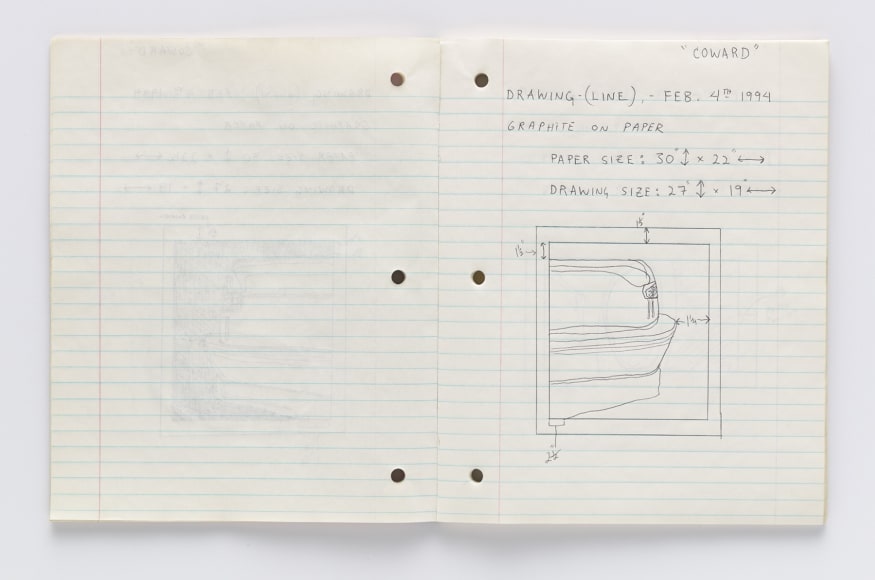 "COWARD"
DRAWING-(LINE), - FEB. 4TH 1994
GRAPHITE ON PAPER
PAPER SIZE: 30" ↕ × 22" ↔
DRAWING SIZE: 27" ↕ × 19" ↔